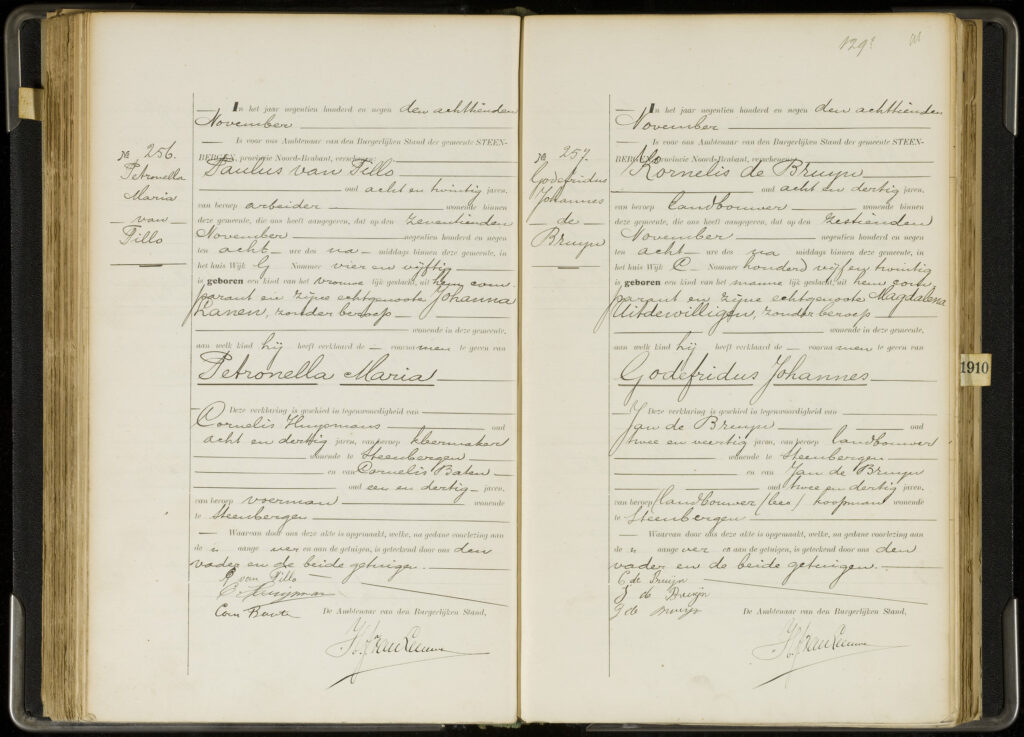 No 256.
Petronella
Maria
van
Tillo
In het jaar negentien honderd en negen den achttienden
November
Is voor ons Ambtenaar van den Burgerlijken Stand der gemeente STEEN-
BERGEN, provincie Noord-Brabant, verschenen
Paulus van Tillo
oud acht en twintig jaren,
van beroep arbeider wonende binnen
deze gemeente, die ons heeft aangegeven, dat op den zeventienden
November negentien honderd en negen
ten acht ure des na middags binnen deze gemeente, in
het huis Wijk G Nommer vier en vijftig
is geboren een kind van het vrouwe lijk geslacht, uit hem com-
parant en zijne echtgenoote Johanna
Lanen, zonder beroep
wonende in deze gemeente,
aan welk kind hij heeft verklaard de voorna men te geven van
Petronella Maria
Deze verklaring is geschied in tegenwoordigheid van
Cornelis Huijsmans oud
acht en dertig jaren, van beroep kleermaker
wonende te Steenbergen
en van Cornelis Baten
oud een en dertig jaren,
van beroep voerman wonende
te Steenbergen
Waarvan door ons deze akte is opgemaakt, welke, na gedane voorlezing aan
de n aange ver en aan de getuigen, is geteekend door ons den
vader en de beide getuigen.
P van Tillo
C. Huijsmans
Corn Baute
De Ambtenaar van den Burgerlijken Stand,
129
No 257.
Godefridus
Johannes
de
Bruyn
In het jaar negentien honderd en negen den achttienden
November
Is voor ons Ambtenaar van den Burgerlijken Stand der gemeente STEEN-
BERGEN, provincie Noord-Brabant, verschenen
Kornelis de Bruyn
oud acht en dertig jaren,
van beroep landbouwer wonende binnen
deze gemeente, die ons heeft aangegeven, dat op den zestienden
November negentien honderd en negen
ten acht ure des na middags binnen deze gemeente, in
het huis Wijk C Nommer honderd vijf en twintig
is geboren een kind van het manne lijk geslacht, uit hem com-
parant en zijne echtgenoote Magdalena
Uitdewilligen, zonder beroep
wonende in deze gemeente,
aan welk kind hij heeft verklaard de voorna men te geven van
Godefridus Johannes
Deze verklaring is geschied in tegenwoordigheid van
Jan de Bruyn oud
twee en veertig jaren, van beroep landbouwer
wonende te Steenbergen
en van Jan de Bruyn
oud twee en dertig jaren,
van beroep landbouwer (lees) koopman wonende
te Steenbergen
Waarvan door ons deze akte is opgemaakt, welke, na gedane voorlezing aan
de n aange ver en aan de getuigen, is geteekend door ons den
vader en de beide getuigen.
C. de Bruijn
J de Bruijn
J de Bruijn
De Ambtenaar van den Burgerlijken Stand,
1910